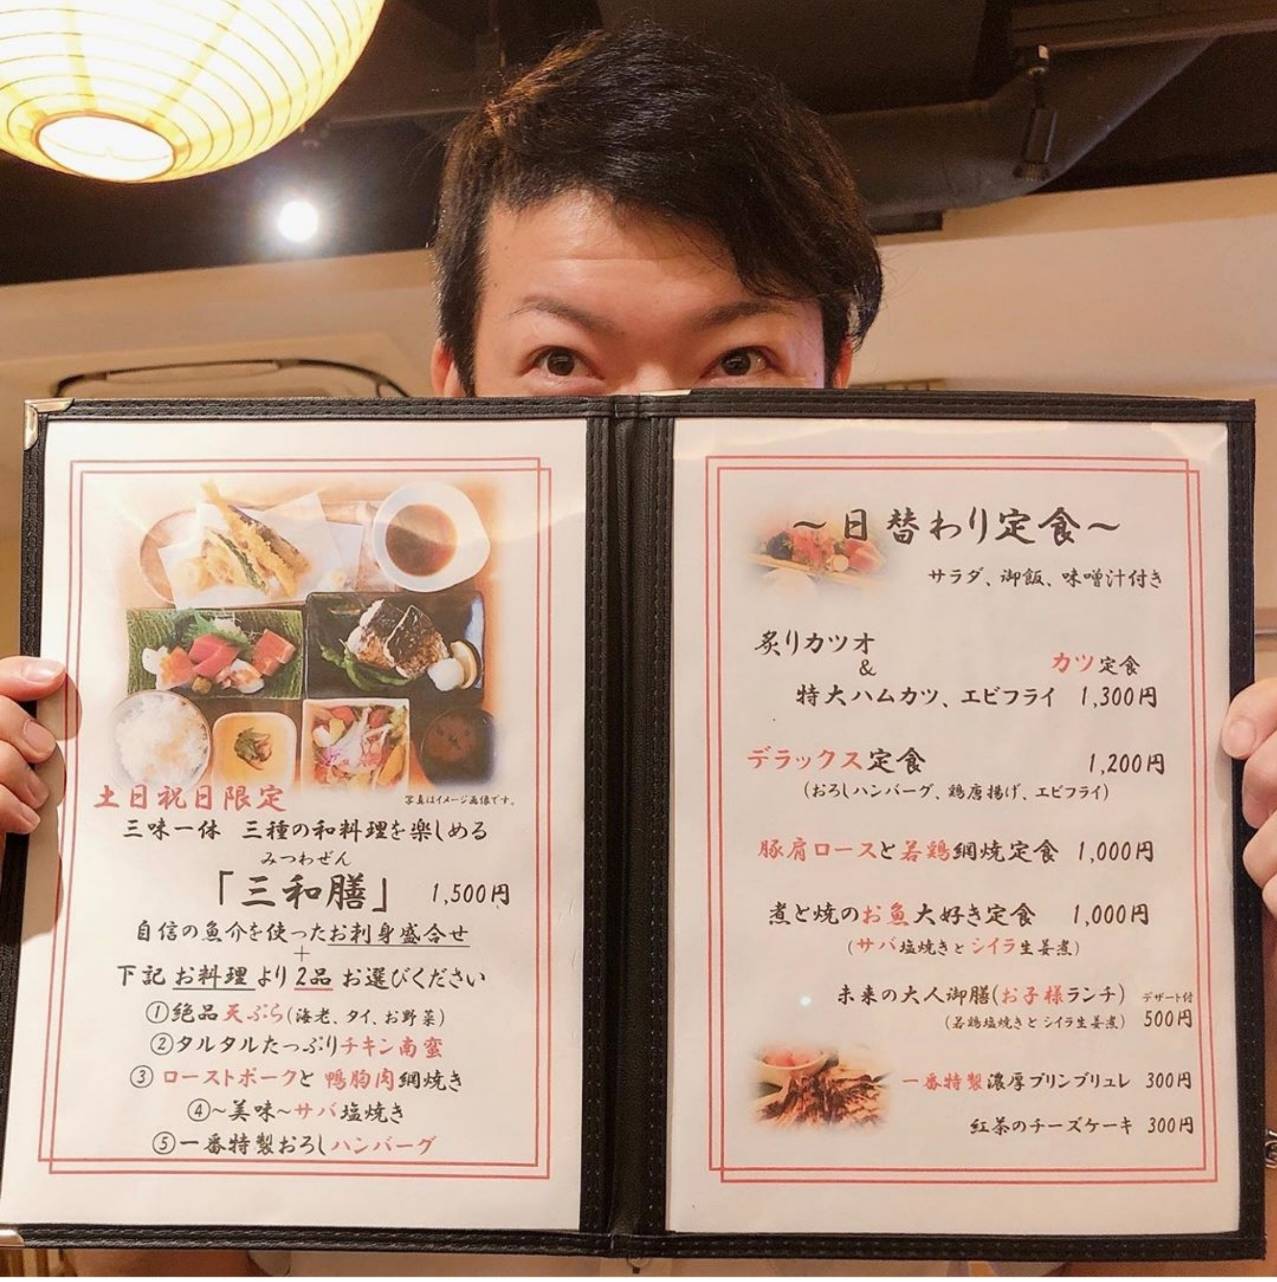 土日祝日限定
写真はイメージ画像です。
三味一体 三種の和料理を楽しめる
みつわぜん
「三和膳」 1,500円
自信の魚介を使ったお刺身盛合せ
＋
下記 お料理 より 2品 お選びください
①絶品天ぷら(海老、タイ、お野菜)
②タルタルたっぷりチキン南蛮
③ ローストポークと 鴨胸肉網焼き
④～美味～サバ塩焼き
⑤一番特製おろしハンバーグ
～日替わり定食～
サラダ、御飯、味噌汁付き
炙りカツオ
&
カツ定食
特大ハムカツ、エビフライ 1,300円
デラックス定食 1,200円
(おろしハンバーグ、鶏唐揚げ、エビフライ)
豚肩ロースと若鶏網焼定食 1,000円
煮と焼のお魚大好き定食 1,000円
(サバ塩焼きと シイラ生姜煮)
未来の大人御膳(お子様ランチ) デザート付
(若鶏塩焼きと シイラ生姜煮) 500円
一番特製濃厚プリンブリュレ 300円
紅茶のチーズケーキ 300円